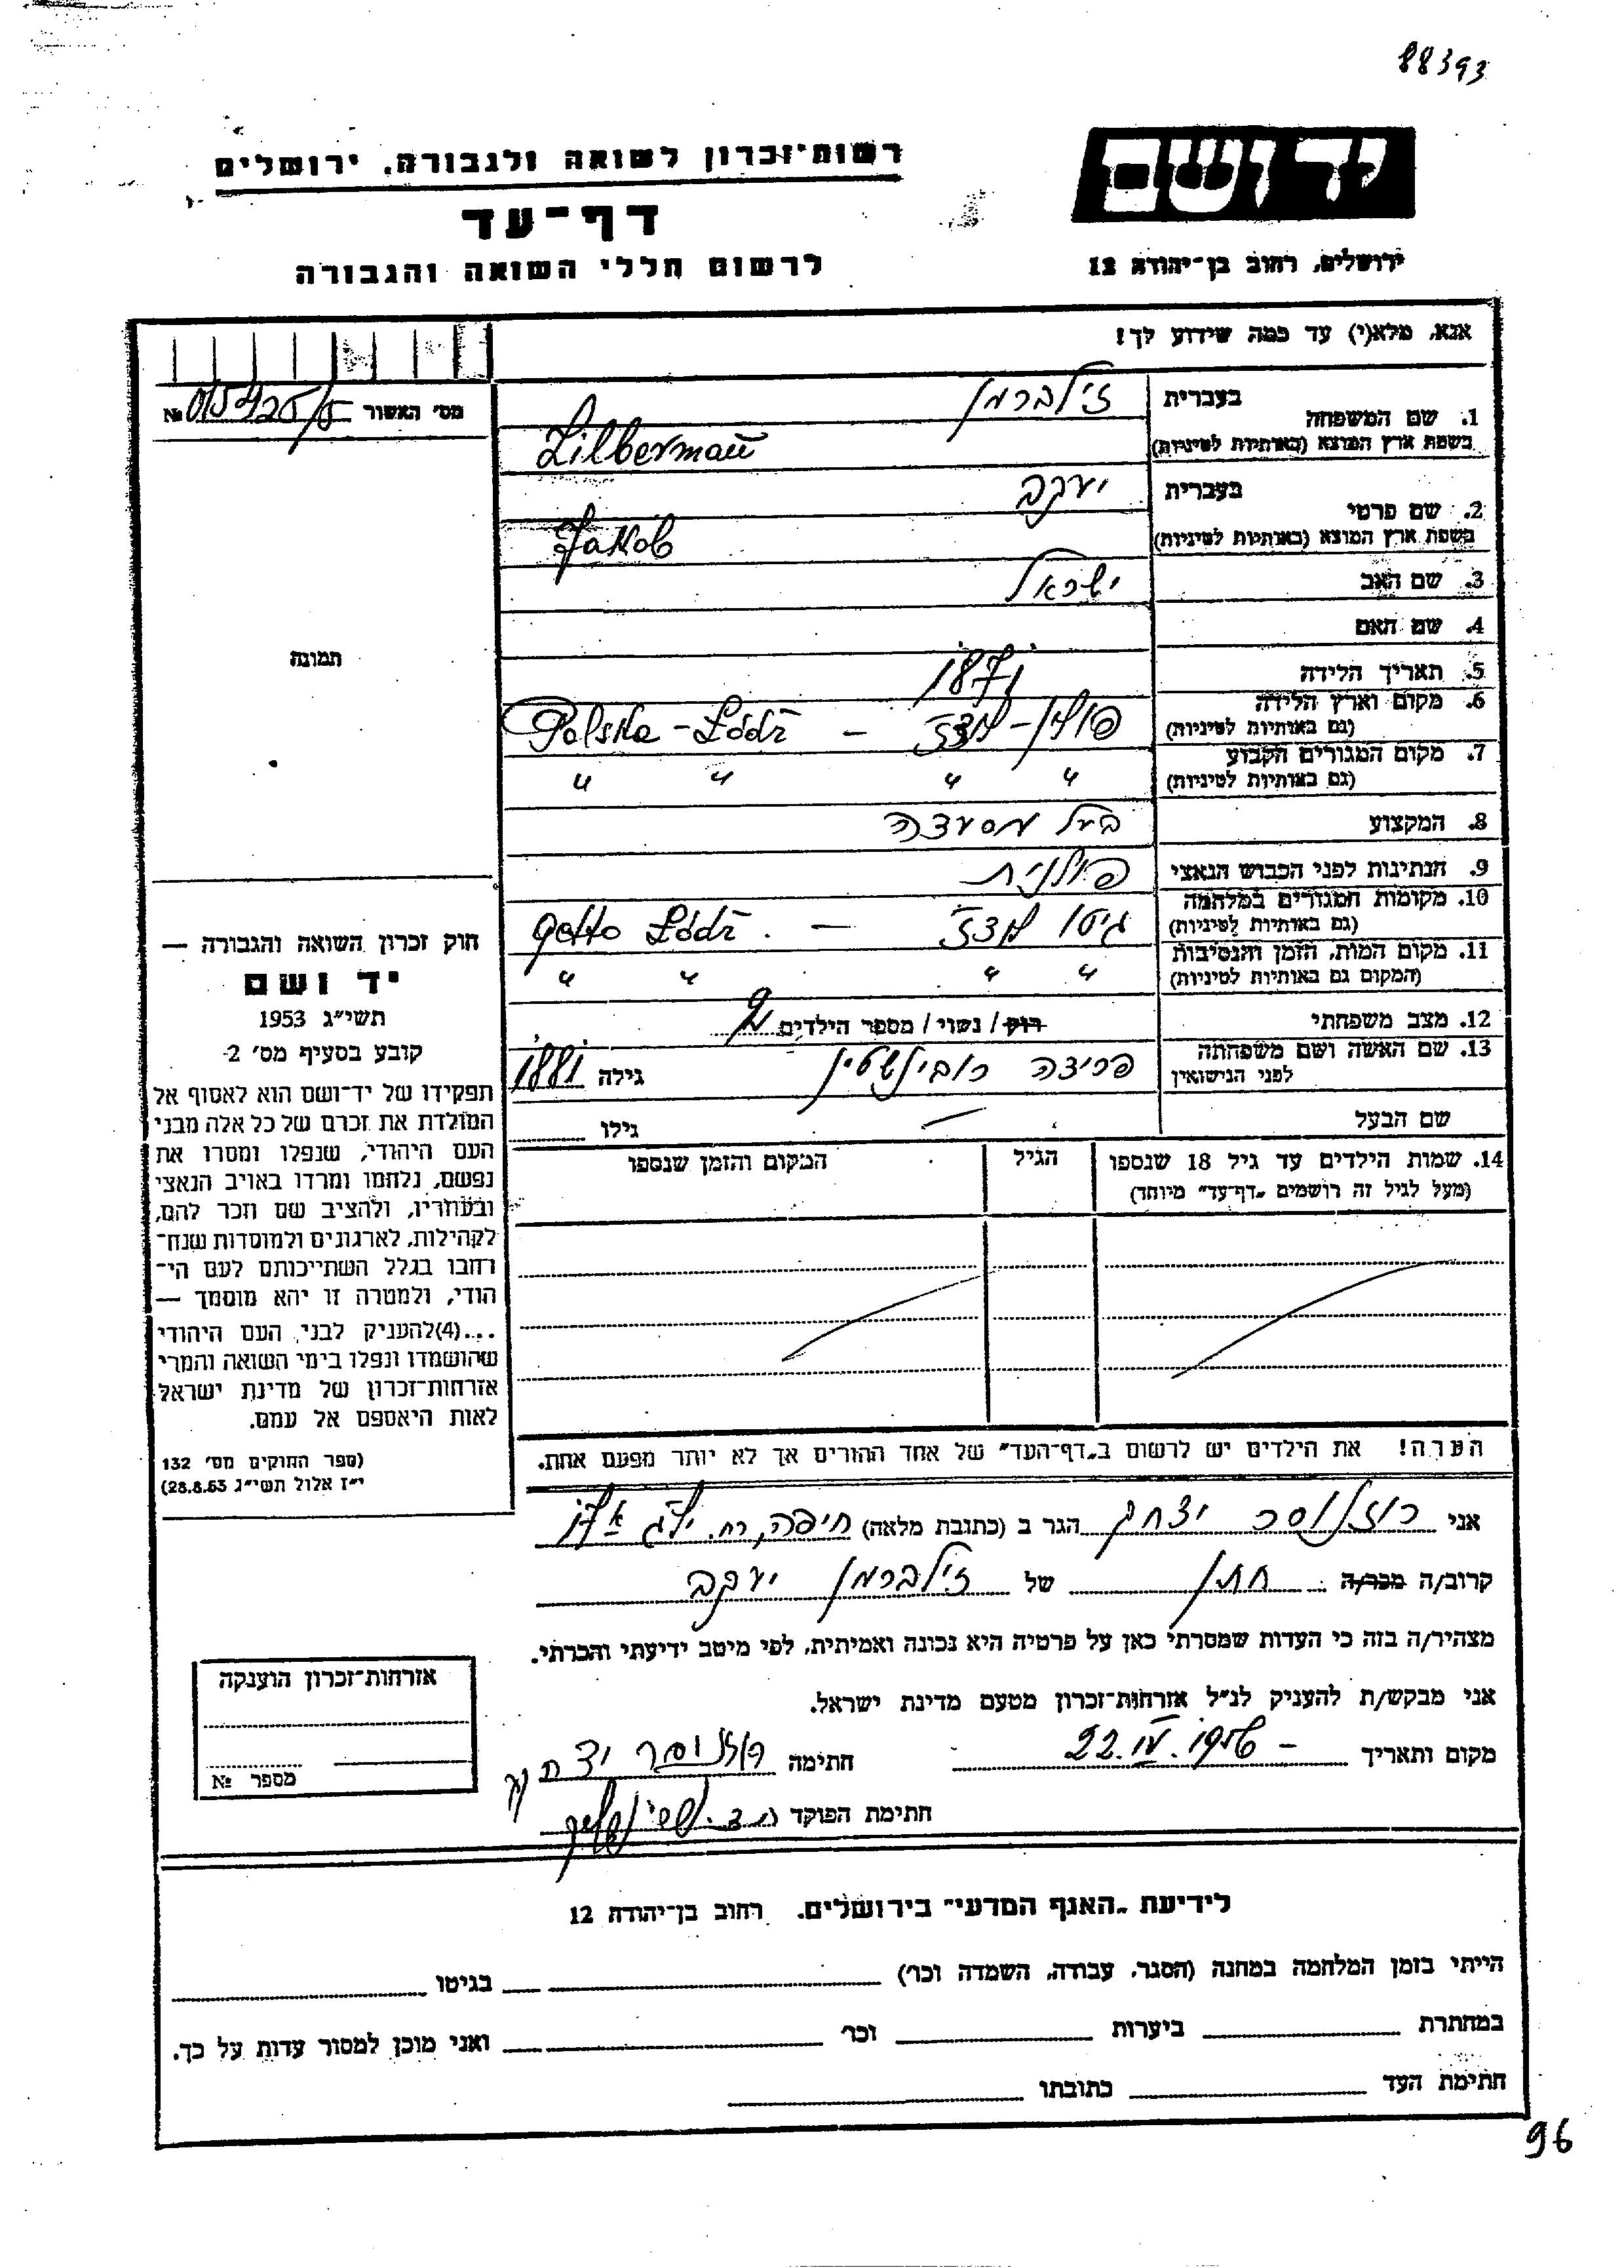 88393
רשות־זכרון לשואה ולגבורה, ירושלים
יד ושם
דף־עד
לרשום חללי השואה והגבורה
ירושלים, רחוב בן־יהודה 12
אנא, מלא(י) עד כמה שידוע לך!
מס' האשור №
1. שם המשפחה בעברית זילברמן
בשפת ארץ המוצא (באותיות לטיניות) Zilberman
2. שם פרטי בעברית יעקב
בשפת ארץ המוצא (באותיות לטיניות) Jakob
3. שם האב ישראל
4. שם האם
תמונה
5. תאריך הלידה 1871
6. מקום וארץ הלידה (גם באותיות לטיניות) פולין - לודז' - Polska - Łódź
7. מקום המגורים הקבוע (גם באותיות לטיניות) " " " "
8. המקצוע בעל מסעדה
9. הנתינות לפני הכבוש הנאצי פולנית
10. מקומות המגורים במלחמה (גם באותיות לטיניות) גיטו לודז' - Getto Łódź
11. מקום המות, הזמן והנסיבות (המקום גם באותיות לטיניות) " " " "
12. מצב משפחתי רווק / נשוי / מספר הילדים 2
13. שם האשה ושם משפחתה לפני הנישואין פריצה רובינשטיין גילה 1881
שם הבעל — גילו
14. שמות הילדים עד גיל 18 שנספו הגיל המקום והזמן שנספו
(מעל לגיל זה רושמים „דף־עד" מיוחד)
הערה! את הילדים יש לרשום ב„דף־העד" של אחד ההורים אך לא יותר מפעם אחת.
חוק זכרון השואה והגבורה —
יד ושם
תשי"ג 1953
קובע בסעיף מס' 2-
תפקידו של יד־ושם הוא לאסוף אל
המולדת את זכרם של כל אלה מבני
העם היהודי, שנפלו ומסרו את
נפשם, נלחמו ומרדו באויב הנאצי
ובעוזריו, ולהציב שם וזכר להם,
לקהילות, לארגונים ולמוסדות שנח־
רובו בגלל השתייכותם לעם הי־
הודי, ולמטרה זו יהא מוסמך —
...(4)להעניק לבני העם היהודי
שהושמדו ונפלו בימי השואה והמרי
אזרחות־זכרון של מדינת ישראל
לאות היאספם אל עמם.
(ספר החוקים מס' 132
י"ז אלול תשי"ג 28.8.53)
אני רוזנוסר יצחק הגר ב (כתובת מלאה) חיפה, רח.
קרוב/ה מכר/ה חתן של זילברמן יעקב
מצהיר/ה בזה כי העדות שמסרתי כאן על פרטיה היא נכונה ואמיתית, לפי מיטב ידיעתי והכרתי.
אני מבקש/ת להעניק לנ"ל אזרחות־זכרון מטעם מדינת ישראל.
מקום ותאריך 22.IV.1956 - חתימה רוזנוסר יצחק
חתימת הפוקד
אזרחות־זכרון הוענקה
מספר №
לידיעת „האגף המדעי" בירושלים. רחוב בן־יהודה 12
הייתי בזמן המלחמה במחנה (הסגר, עבודה, השמדה וכו') בגיטו
במחתרת ביערות וכו' ואני מוכן למסור עדות על כך.
חתימת העד כתובתו
96